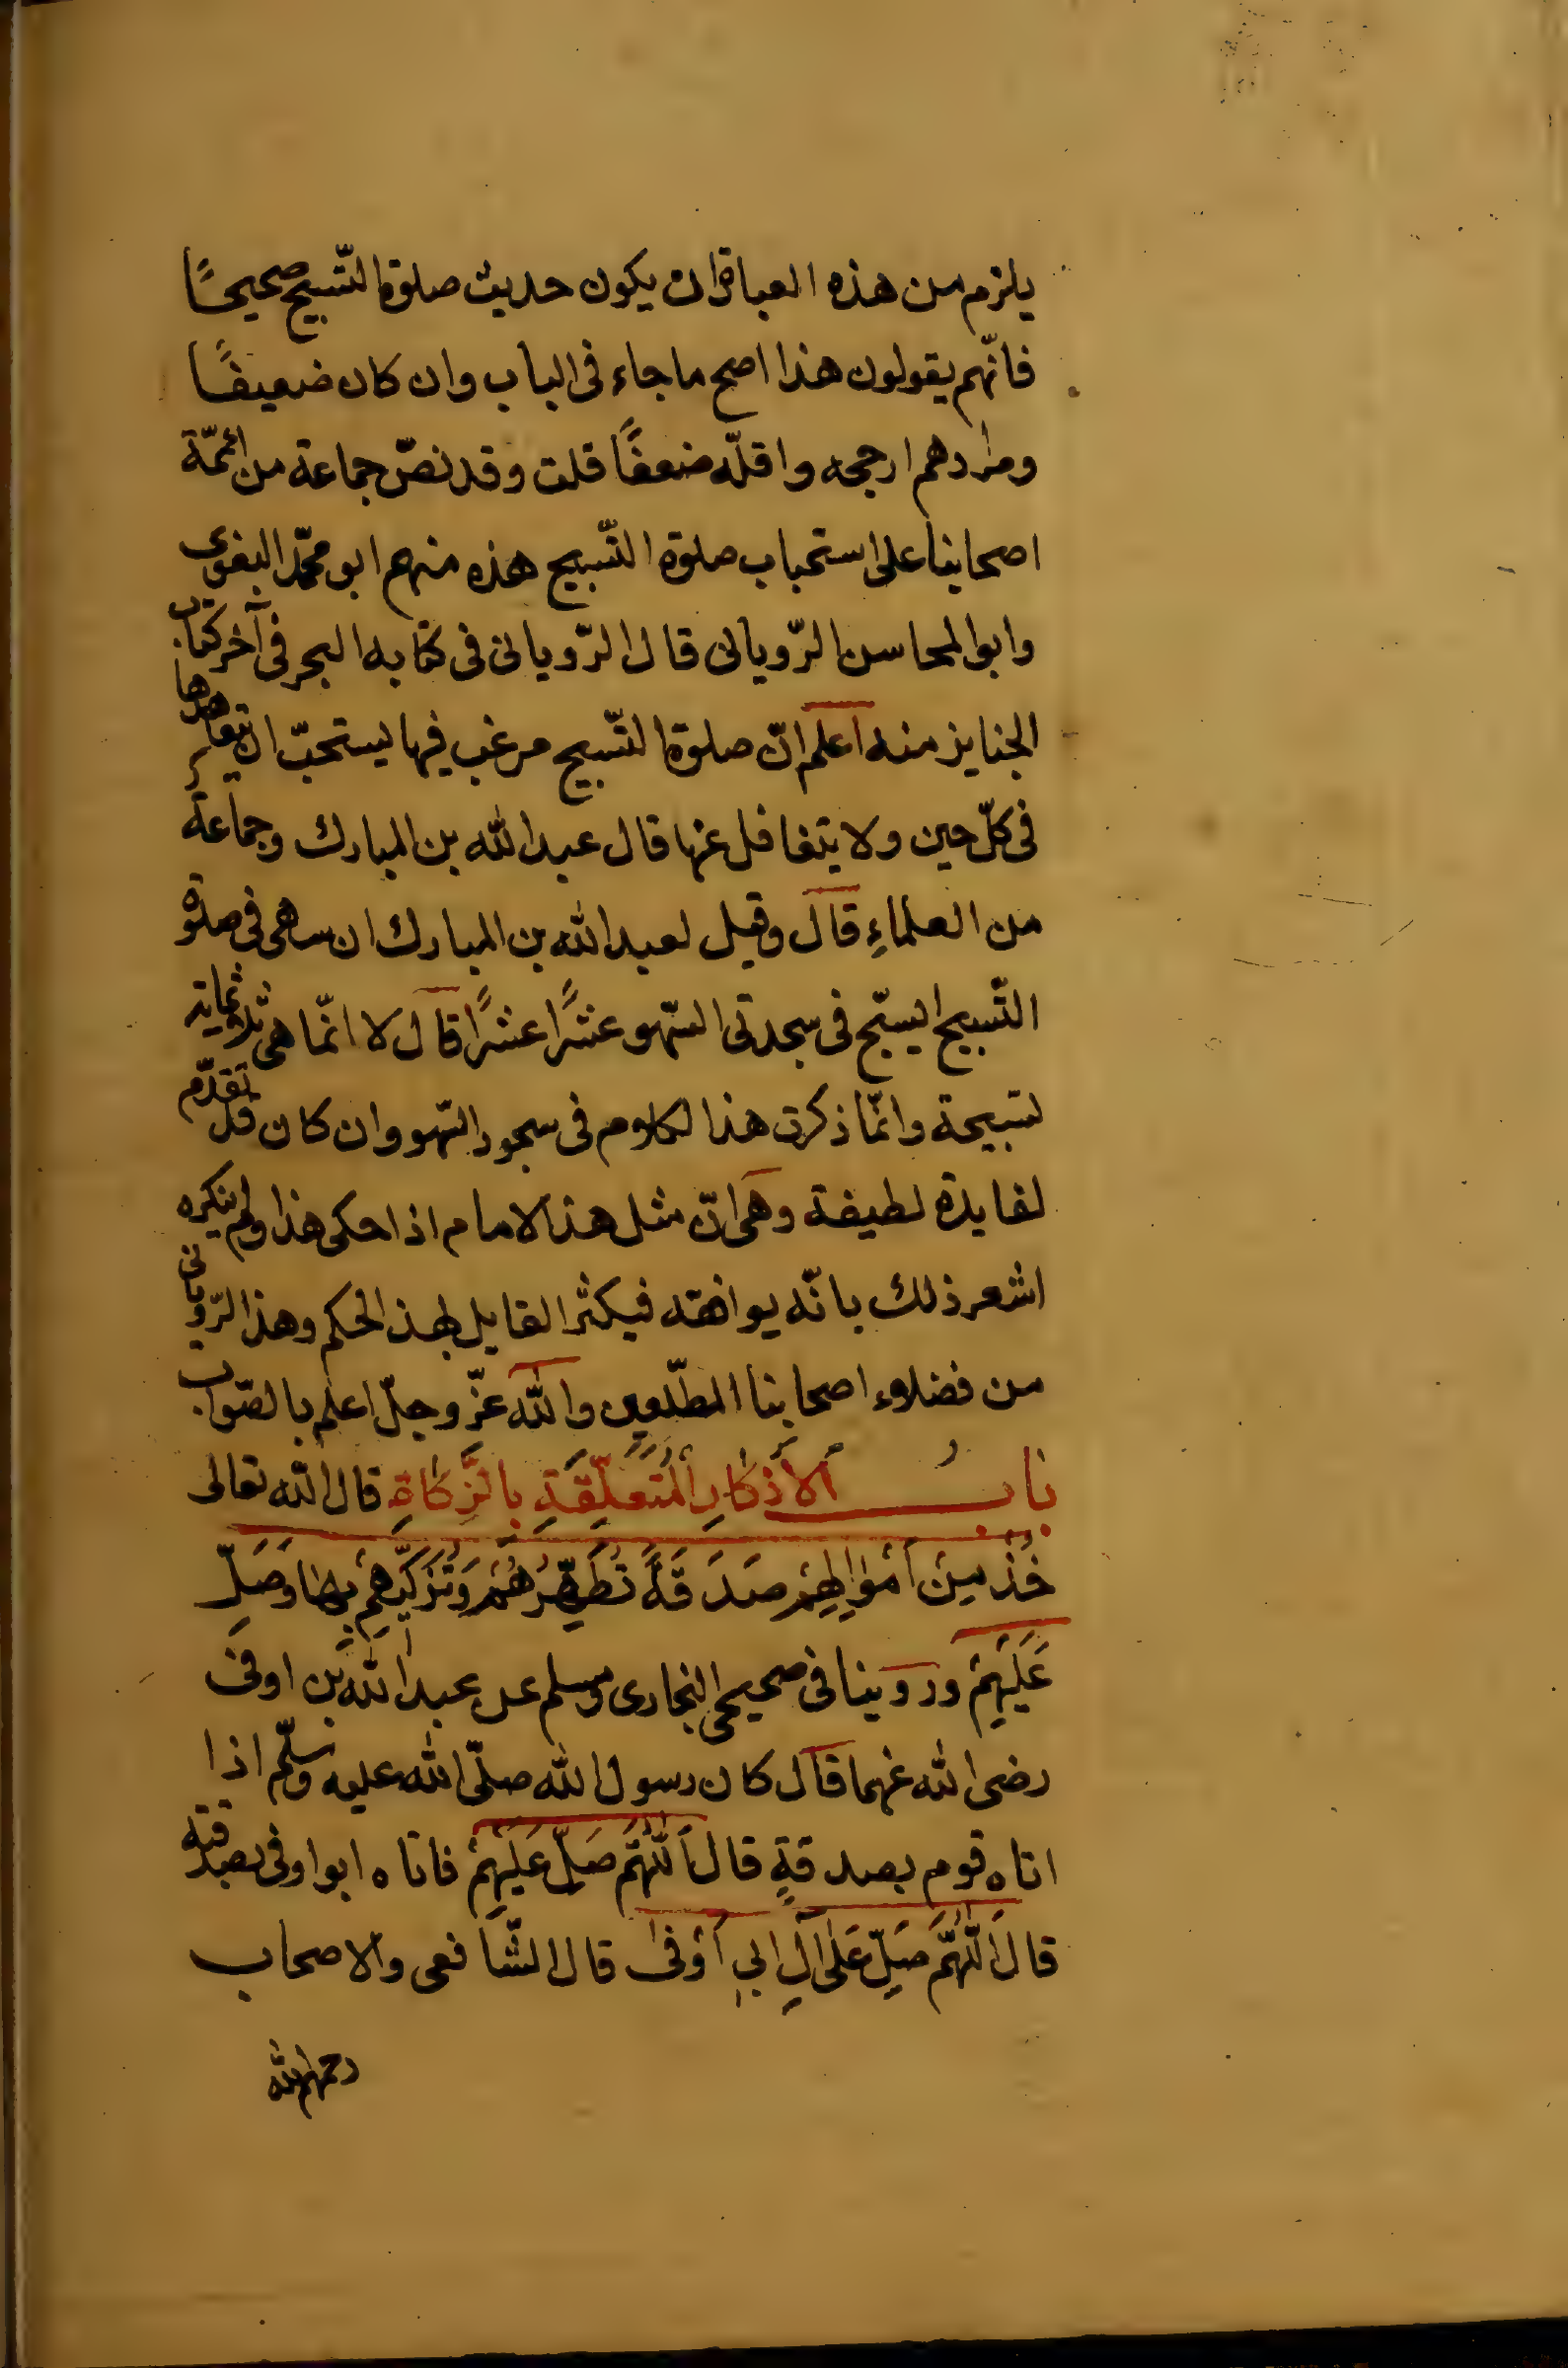 يلزم من هذه العبارة ان يكون حديث صلوة التّسبيح صحيحًا
فانّهم يقولون هذا اصح ما جاء فى الباب وان كان ضعيفًا
ومرادهم ارجحه واقلّه ضعفًا قلت وقد نصّ جماعة من ائمّة
اصحابنا على استحباب صلوة التّسبيح هذه منهم ابو محمّد البغوى
وابوا المحاسن الرّويانى قال الرّويانى فى كتابه البحر فى آخر كتاب
الجنايز منه اعلم انّ صلوة التّسبيح مرغب فيها يستحبّ ان يتعاهدها
فى كلّ حين ولا يتغافل عنها قال عبد الله بن المبارك وجماعة
من العلماءِ قال وقيل لعبد الله بن المبارك ان سهى فى صلوة
التّسبيح ايسبّح فى سجدتى السّهو عشرًا عشرًا قال لا انّما هى ثلاثماية
تسبيحة وانّما ذكرت هذا الكلام فى سجود السّهو وان كان قد تقدّم
لفايدة لطيفة وهى انّ مثل هذا الامام اذا حكى هذا ولم ينكره
اشعر ذلك بانّه يوافقه فيكثر القايل بهذا الحكم وهذا الرّويانى
من فضلاء اصحابنا المطّلعين والله عزّ وجلّ اعلم بالصّواب
بابُ الأَذكَارِ المُتَعَلِّقَةِ بالزَّكَاةِ قال الله تعالى
خُذْ مِنْ اَمْوَالِهِمْ صَدَقَةً تُطَهِّرُهُمْ وَتُزَكِّيهِمْ بِهَا وَصَلِّ
عَلَيْهِمْ وروينا فى صحيحى البخارى ومسلم عن عبد الله بن اوفى
رضى الله عنهما قال كان رسول الله صلّى الله عليه وسلّم اذا
اتاه قوم بصدقةٍ قال اَللّٰهُمَّ صَلِّ عَلَيْهِمْ فاتاه ابو اوفى بصدقته
قال اَللّٰهُمَّ صَلِّ عَلَى آلِ اَبِى اَوْفَى قال الشّافعى والاصحاب
رحمهم الله